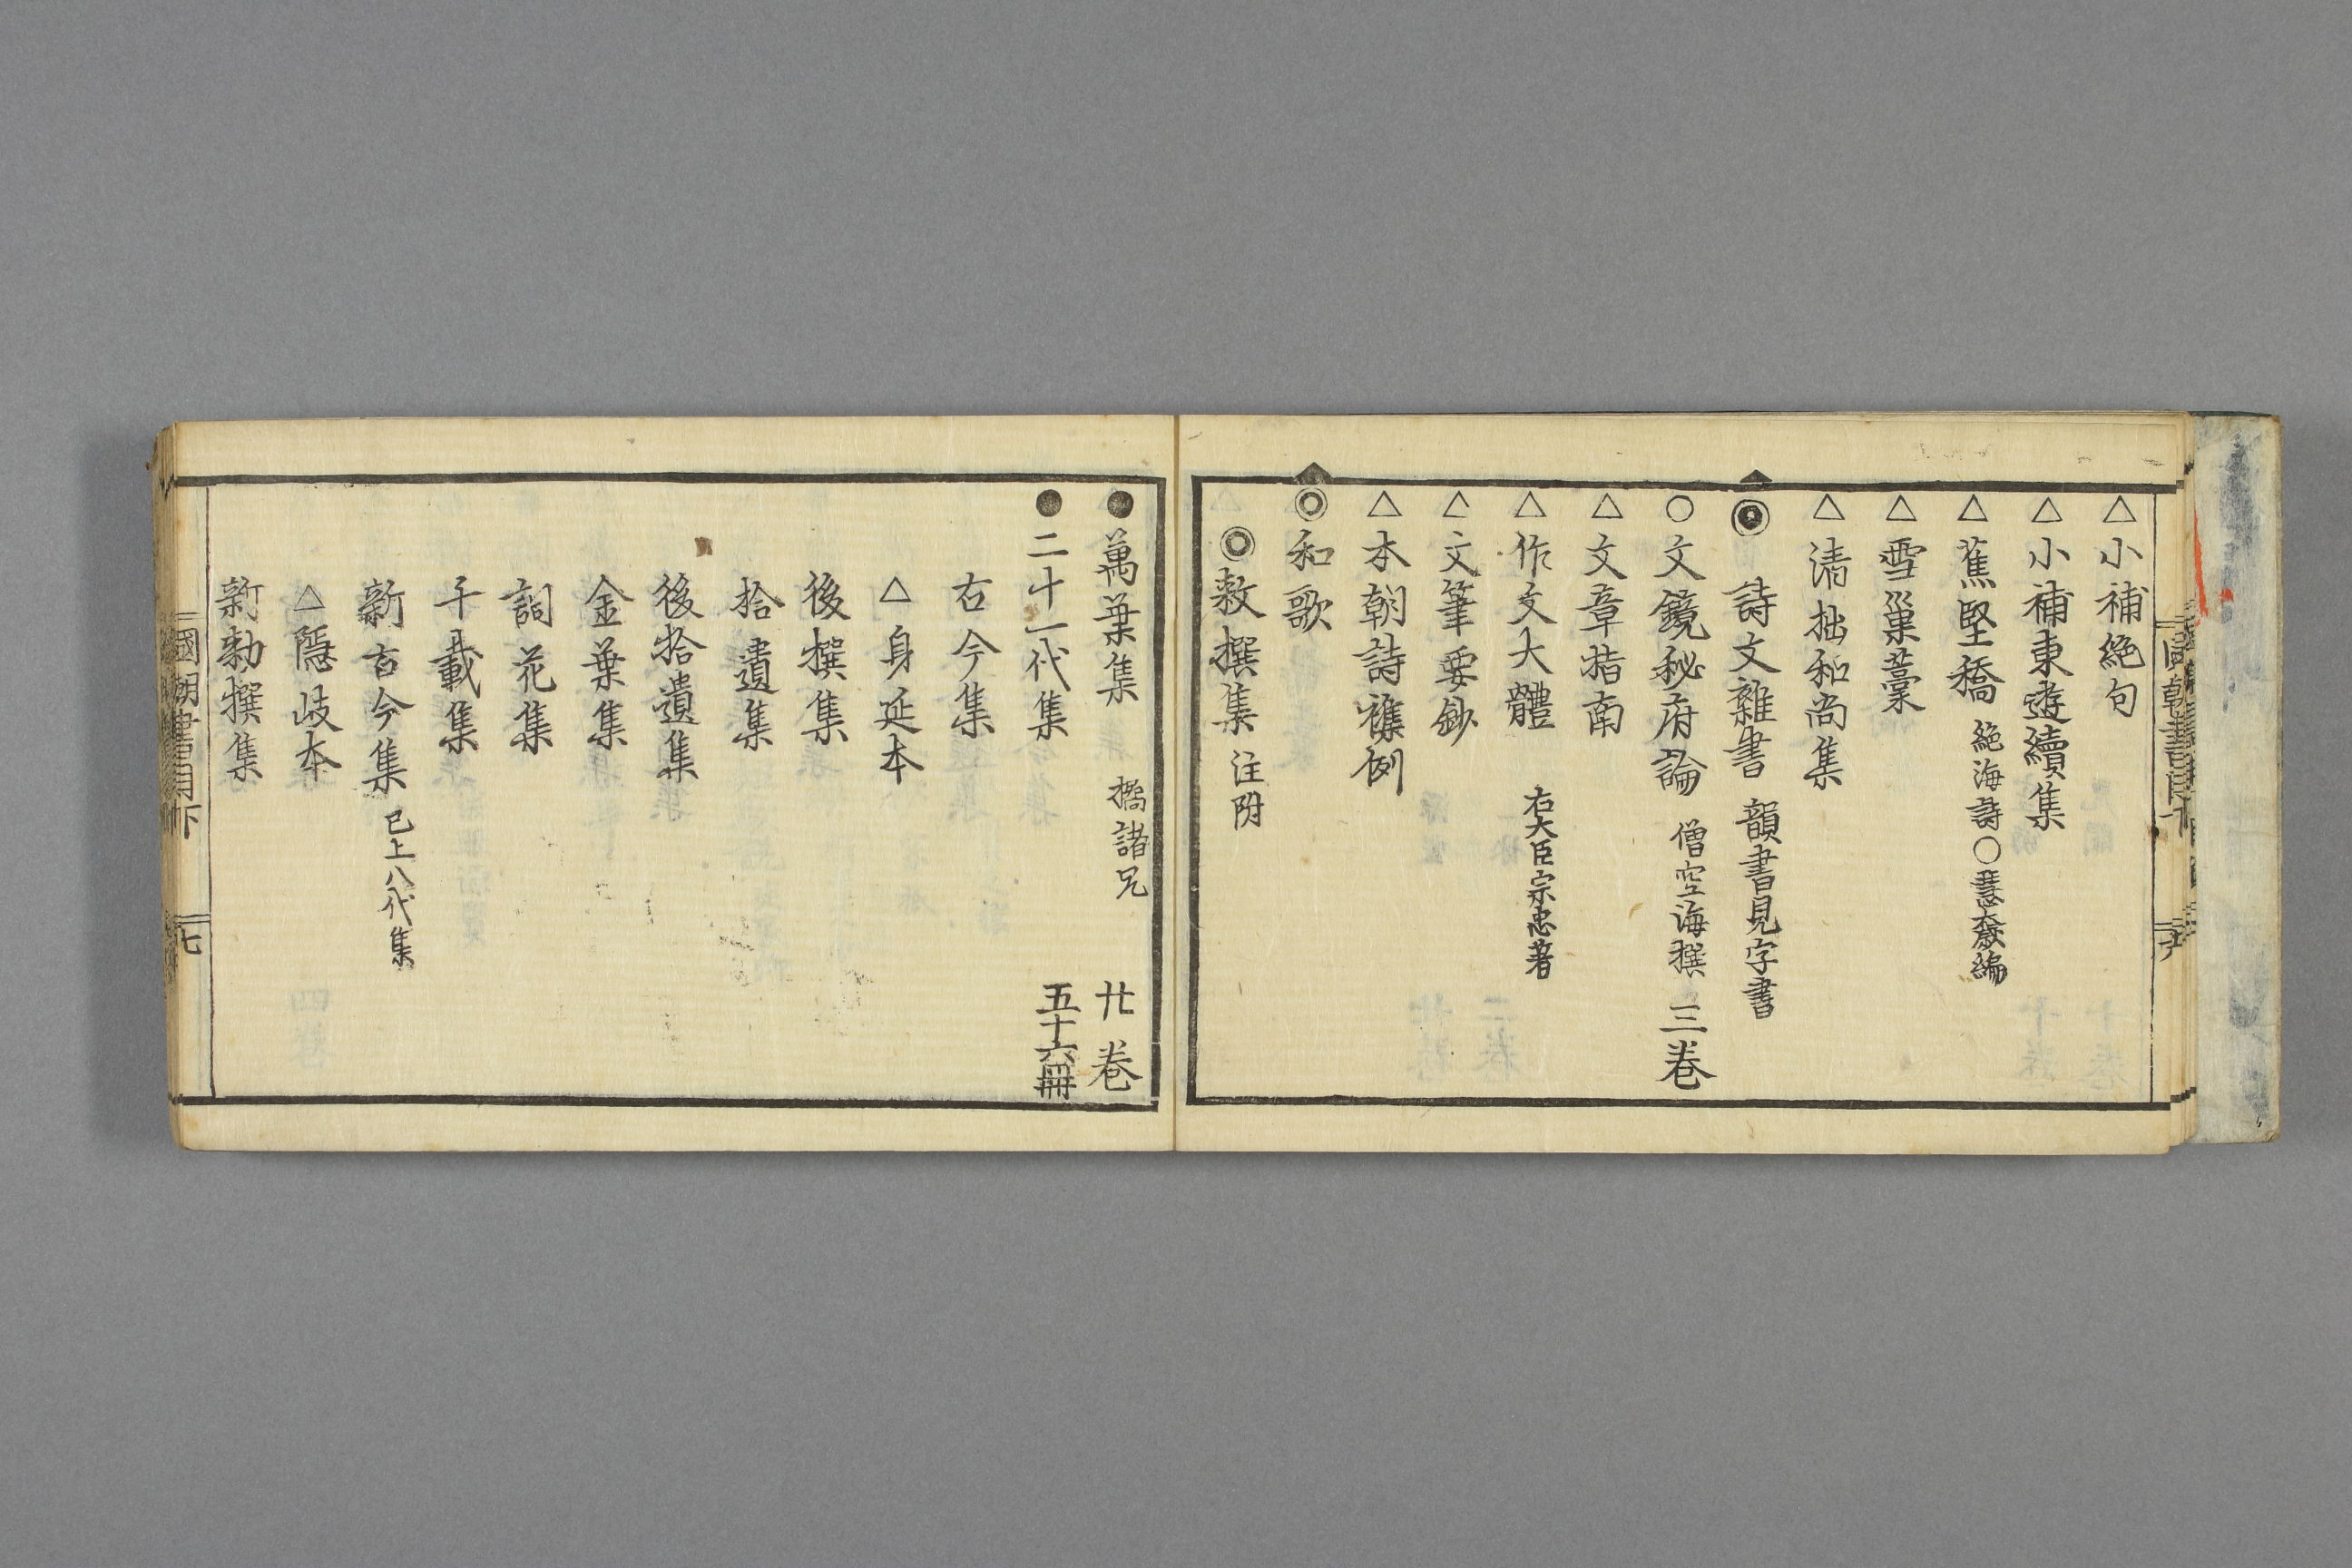 △小補絶句
△小補東遊續集
△蕉堅稿 絶海詩○慧奯編
△雪巢藁
△清拙和尚集
◉詩文雜書 韻書見字書
○文鏡秘府論 僧空海撰 三巻
△文章指南
△作文大體 右大臣宗忠著
△文筆要鈔
△本朝詩襍例
◎和歌
◎敕撰集 注附
●萬葉集 橘諸兄 廿巻
●二十一代集 五十六冊
右今集
△身延本
後撰集
拾遺集
後拾遺集
金葉集
詞花集
千載集
新古今集 已上八代集
△隠岐本
新勅撰集
國朝書目下 七